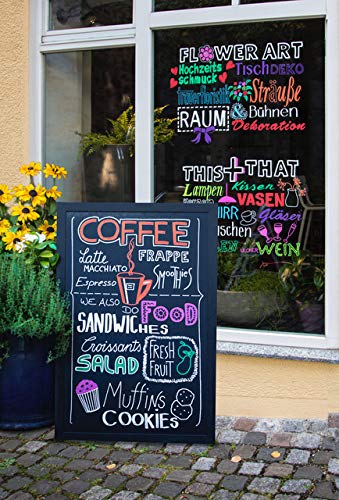 FLOWER ART
Hochzeits
schmuck
TischDEKO
Trauerfloristik
Sträuße
RAUM
& Bühnen
Dekoration
THIS + THAT
Lampen
Kissen
VASEN
IRR
Gläser
schen
EN
WEIN
COFFEE
Latte
MACCHIATO
FRAPPE
Espresso
Smoothies
WE ALSO
DO
FOOD
SANDWICHES
Croissants
SALAD
FRESH
FRUIT
Muffins
COOKIES